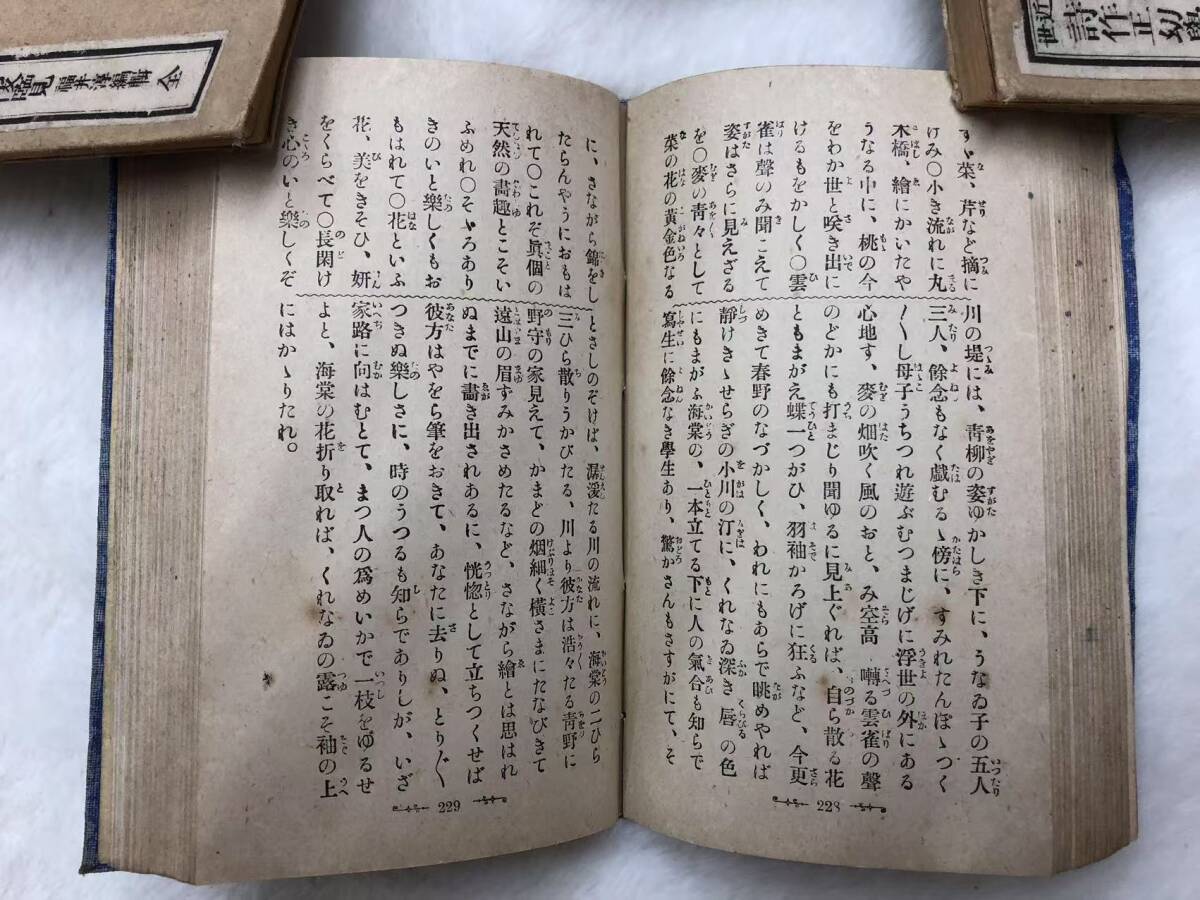 近世
詩作正幼學
覽
全
すゝ菜、芹など摘に
けみ○小き流れに丸
木橋、繪にかいたや
うなる中に、桃の今
をわか世と咲き出に
けるもをかしく○雲
雀は聲のみ聞こえて
姿はさらに見えざる
を○麥の青々として
菜の花の黄金色なる
川の堤には、青柳の姿ゆかしき下に、うなゐ子の五人
三人、餘念もなく戯むるゝ傍に、すみれたんぽゝつく
〳〵し母子うちつれ遊ぶむつまじげに浮世の外にある
心地す、麥の畑吹く風のおと、み空高　囀る雲雀の聲
のどかにも打まじり聞ゆるに見上ぐれば、自ら散る花
ともまがえ蝶一つがひ、羽袖かろげに狂ふなど、今更
めきて春野のなづかしく、われにもあらで眺めやれば
靜けきゝせらぎの小川の汀に、くれなゐ深き唇の色
にもまがふ海棠の、一本立てる下に人の氣合も知らで
寫生に餘念なき學生あり、驚かさんもさすがにて、そ
228
に、さながら錦をし
たらんやうにおもは
れて○これぞ眞個の
天然の畵趣とこそい
ふめれ○そゞろあり
きのいと樂しくもお
もはれて○花といふ
花、美をきそひ、妍
をくらべて○長閑け
き心のいと樂しくぞ
とさしのぞけば、潺湲たる川の流れに、海棠の二ひら
三ひら散りうかびたる、川より彼方は浩々たる青野に
野守の家見えて、かまどの烟細く橫さまにたなびきて
遠山の眉ずみかさめたるなど、さながら繪とは思はれ
ぬまでに畵き出されあるに、恍惚として立ちつくせば
彼方はやをら筆をおきて、あなたに去りぬ、とり〴〵
つきぬ樂しさに、時のうつるも知らでありしが、いざ
家路に向はむとて、まつ人の爲めいかで一枝をゆるせ
よと、海棠の花折り取れば、くれなゐの露こそ袖の上
にはかゝりたれ。
229